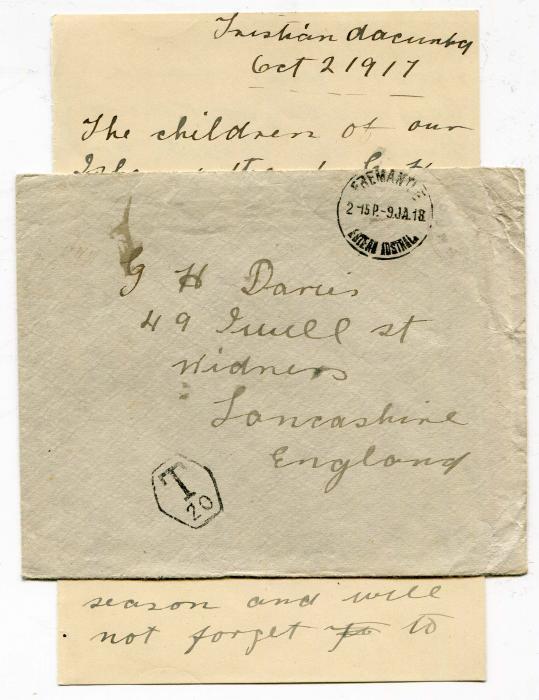 Tristan dacunha
Oct 2 1917
The children of our
FREMANTLE
2-15P.-9.JA.18
WESTERN AUSTRAL
G H Davies
49 st
Widnes
Lancashire
England
T
20
season and will
not forget to